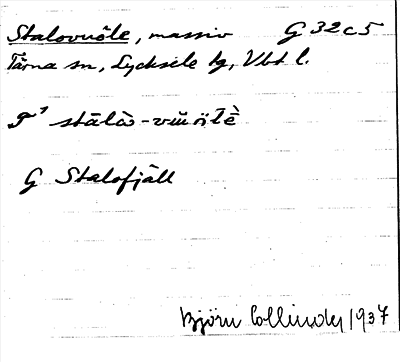 Stalovuöle, massiv G 32 c 5
Tärna sn, Lycksele lg, Vbt l.
stālà-vŭöĺè
G Stalofjäll
Björn Collinder 1937